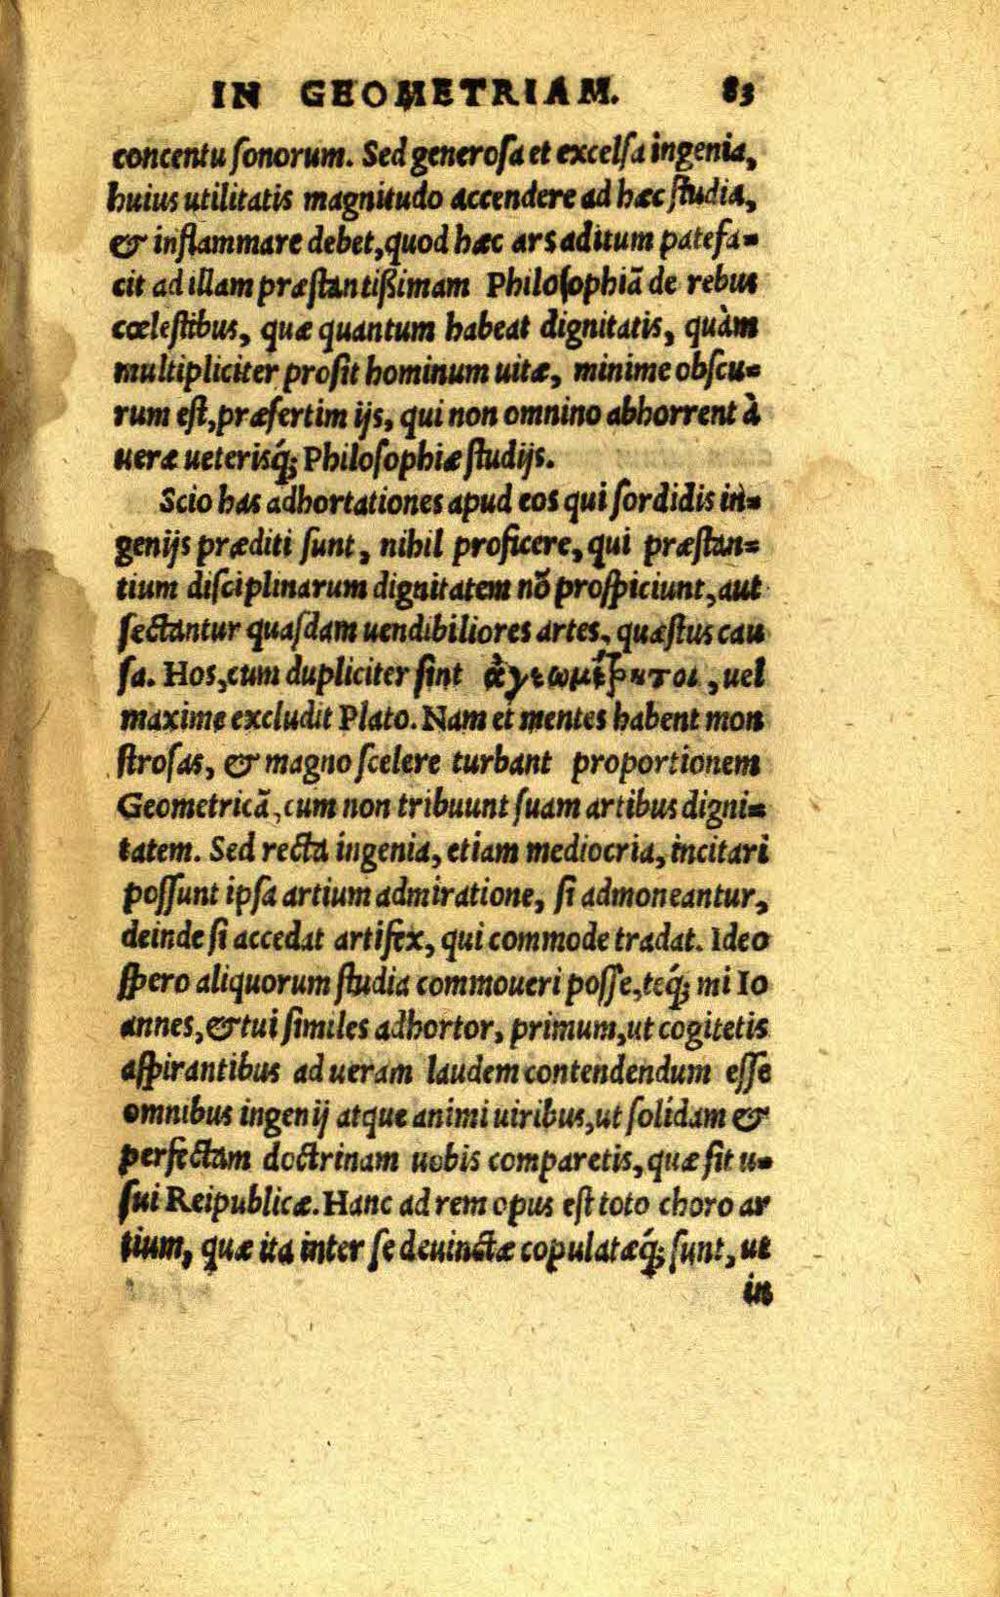 IN GEOMETRIAM. 83
concentu ſonorum. Sed generoſa et excelſa ingenia,
huius utilitatis magnitudo accendere ad hæc ſtudia,
& inflammare debet, quod hæc ars aditum patefa=
cit ad illam præſtantiſsimam Philoſophiã de rebus
cœleſtibus, quæ quantum habeat dignitatis, quàm
multipliciter profit hominum uitæ, minime obſcu=
rum eſt, præſertim ijs, qui non omnino abhorrent à
ueræ ueterisq́; Philoſophiæ ſtudijs.
Scio has adhortationes apud eos qui ſordidis in=
genijs præditi ſunt, nihil proficere, qui præſtan=
tium diſciplinarum dignitatem nõ proſpiciunt, aut
ſectantur quaſdam uendibiliores artes, quæſtus cau
ſa. Hos, cum dupliciter ſint ἀγεωμέτρητοι, uel
maxime excludit Plato. Nam et mentes habent mon
ſtroſas, & magno ſcelere turbant proportionem
Geometricã, cum non tribuunt ſuam artibus digni=
tatem. Sed recta ingenia, etiam mediocria, incitari
poſſunt ipſa artium admiratione, ſi admoneantur,
deinde ſi accedat artifex, qui commode tradat. Ideo
ſpero aliquorum ſtudia commoueri poſſe, teq́; mi Io
annes, & tui ſimiles adhortor, primum, ut cogitetis
aſpirantibus ad ueram laudem contendendum eſſe
omnibus ingenij atque animi uiribus, ut ſolidam &
perfectam doctrinam uobis comparetis, quæ ſit u=
ſui Reipublicæ. Hanc ad rem opus eſt toto choro ar
tium, quæ ita inter ſe deuinctæ copulatæq́; ſunt, ut
in